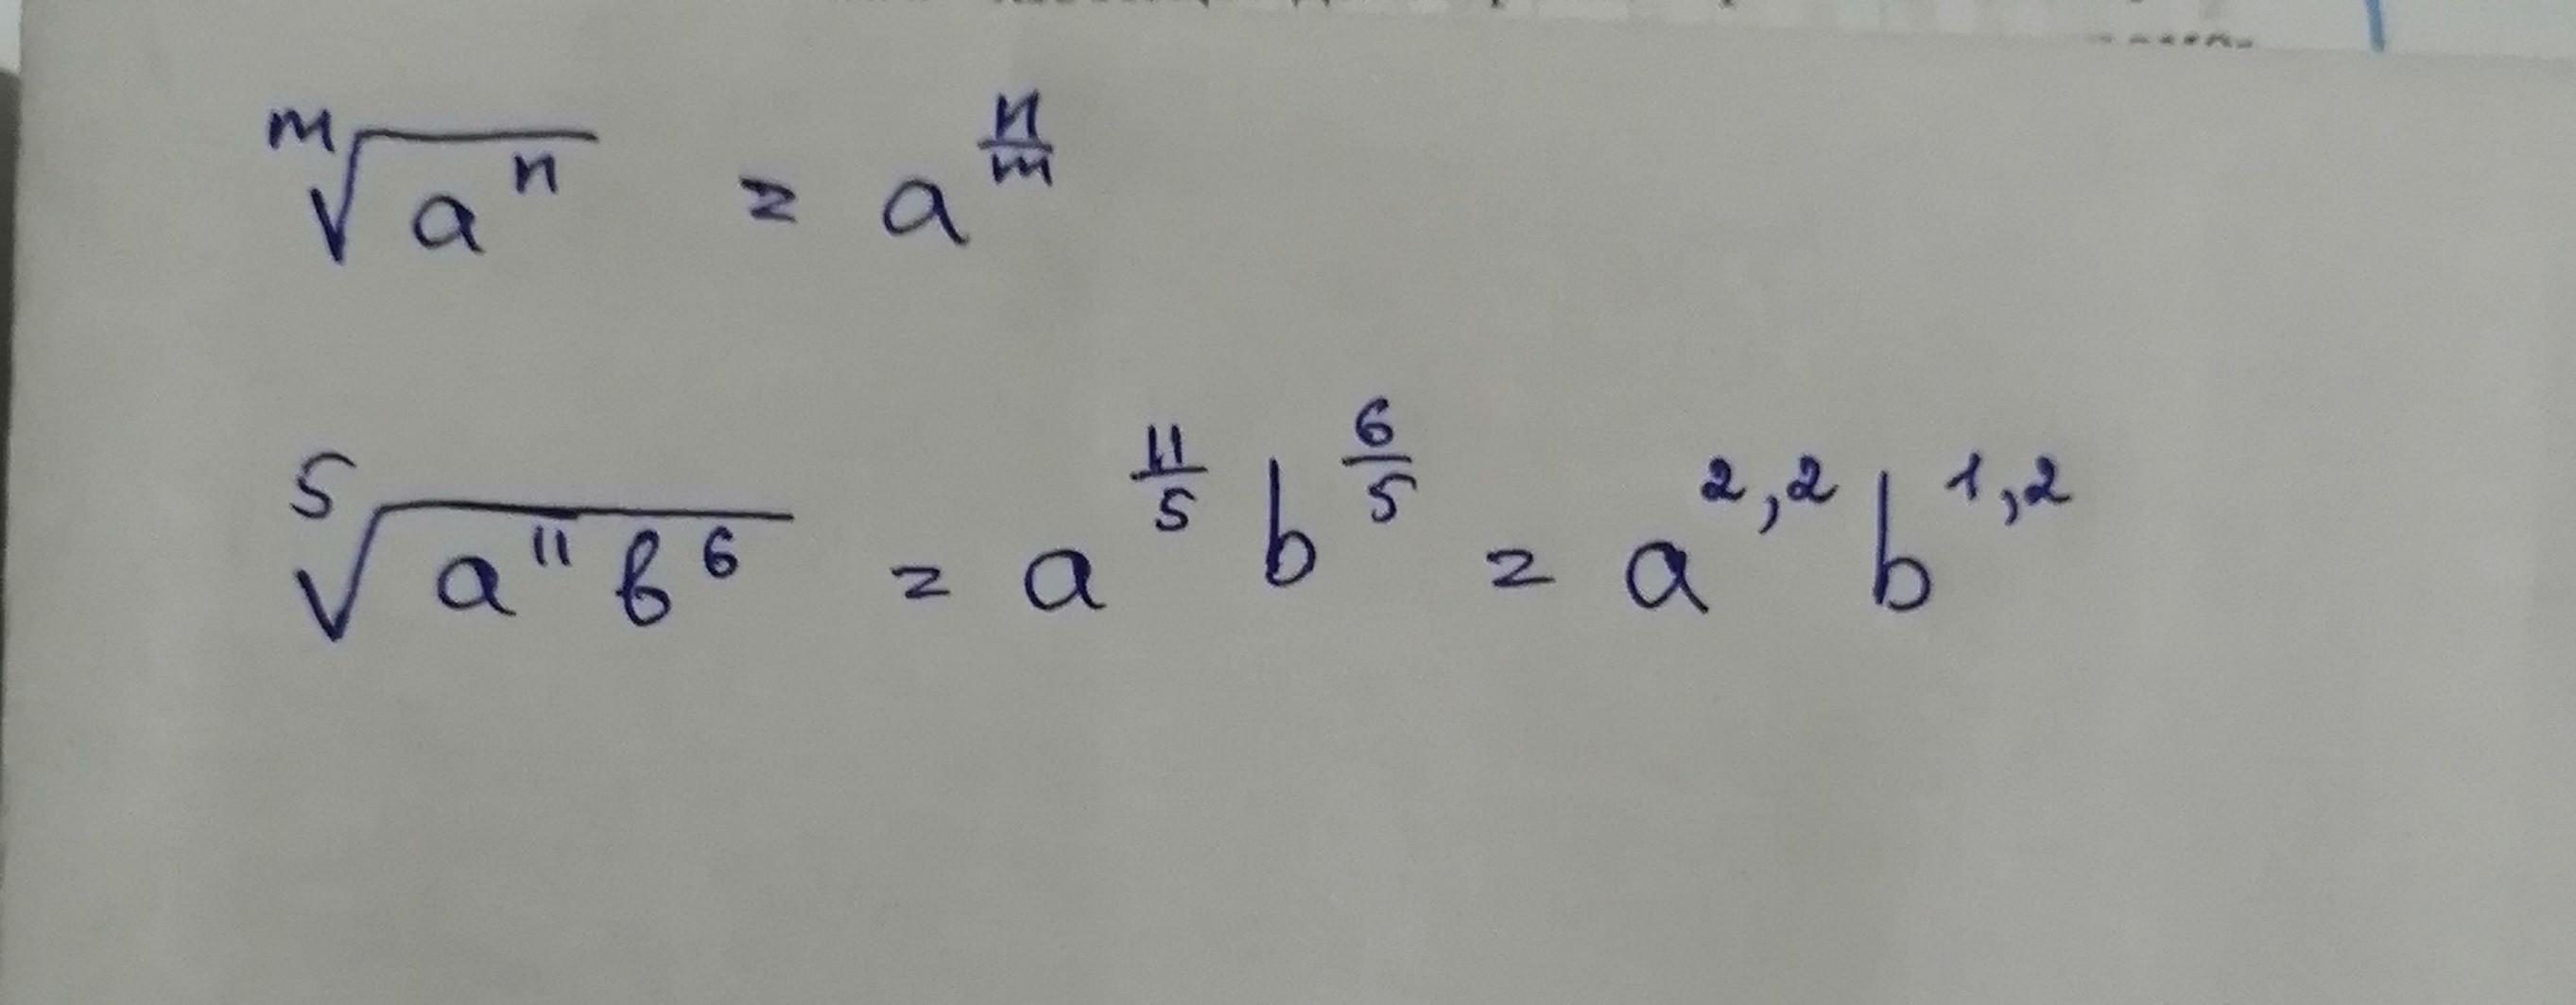 ᵐ√aⁿ = a^(n/m)
⁵√a¹¹b⁶ = a^(11/5) b^(6/5) = a^2,2 b^1,2